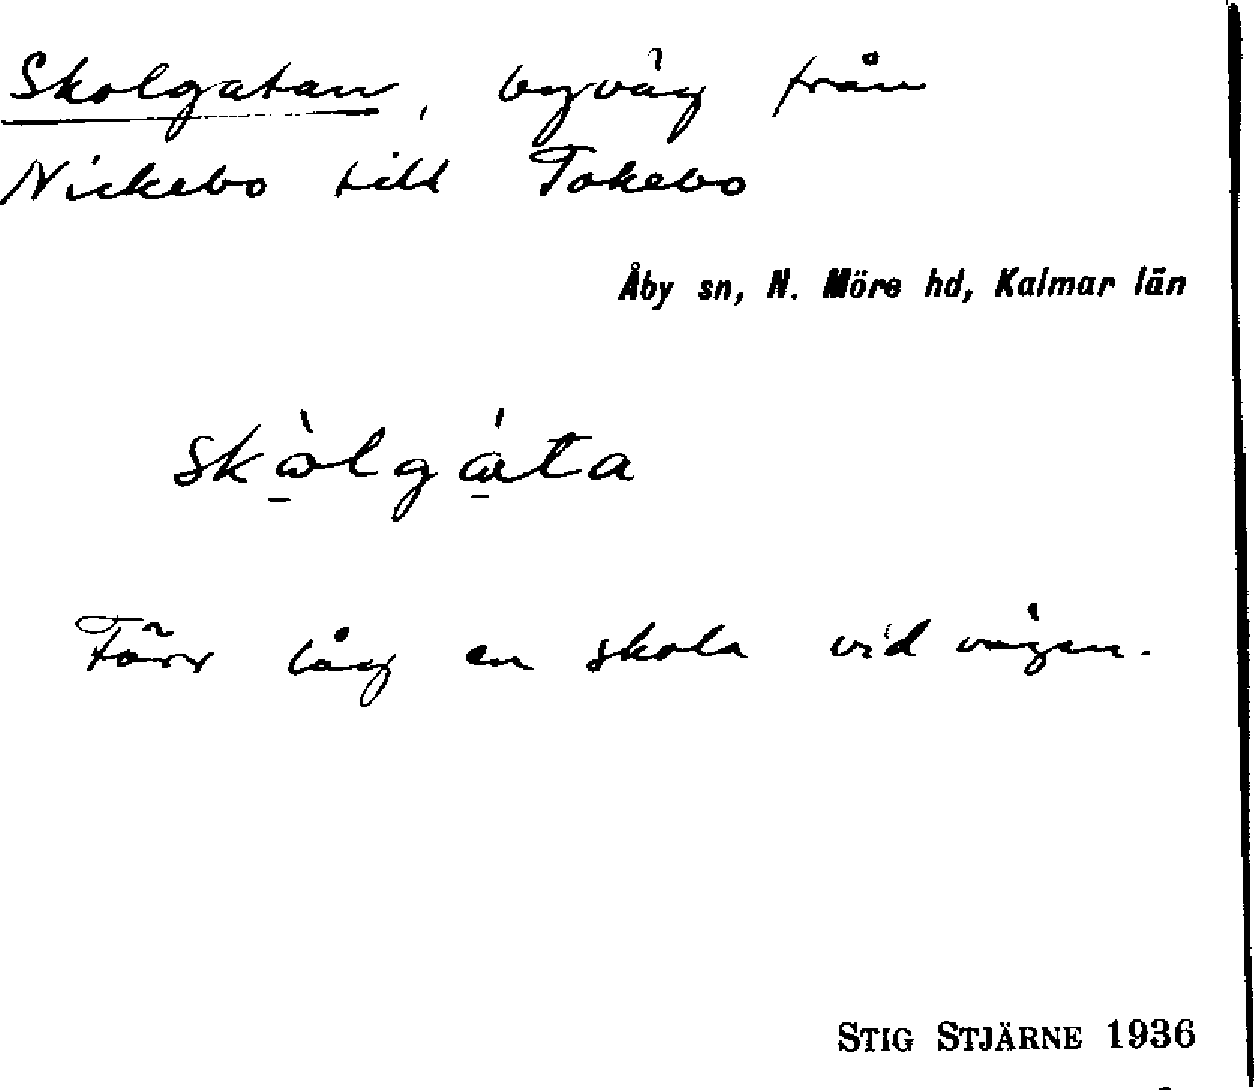 Skolgatan, byväg från
Nickebo till Tokebo
Åby sn, N. Möre hd, Kalmar län
skɷ̀lgɷ́ta
Förr låg en skola vid vägen.
STIG STJÄRNE 1936